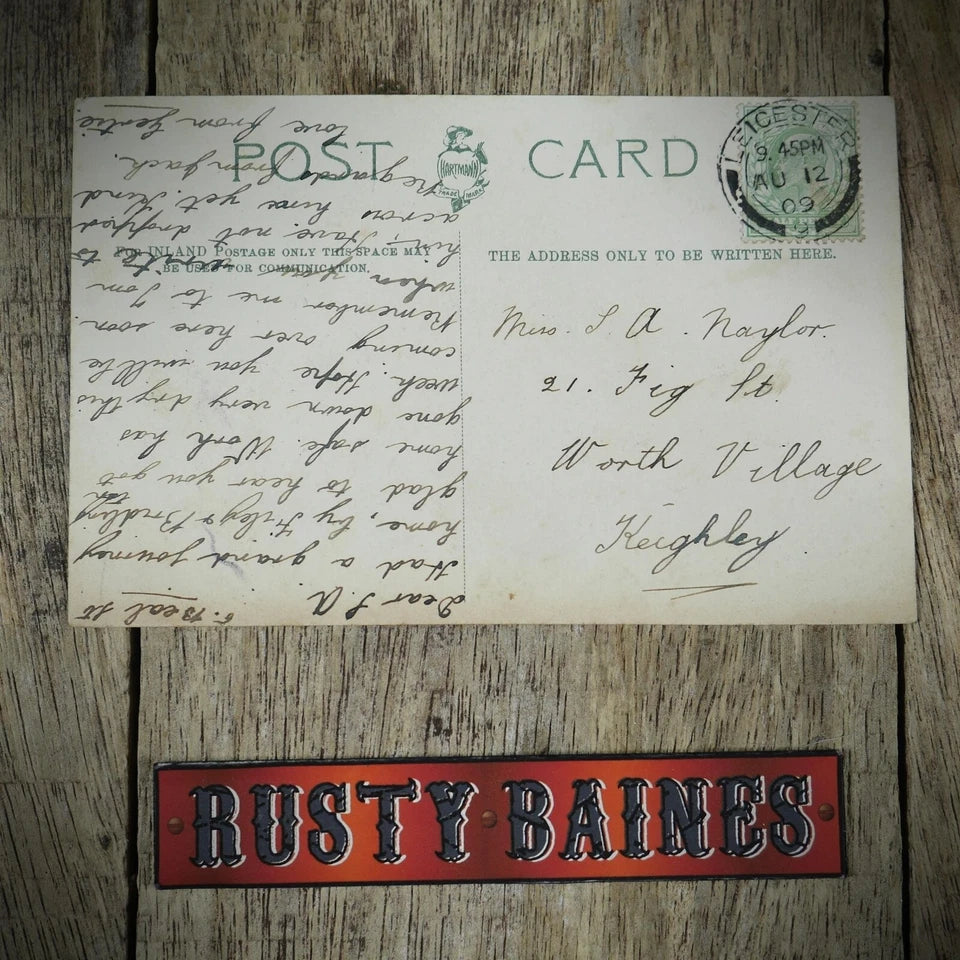 POST CARD
HARTMANN
TRADE MARK
FOR INLAND POSTAGE ONLY THIS SPACE MAY
BE USED FOR COMMUNICATION.
THE ADDRESS ONLY TO BE WRITTEN HERE.
LEICESTER
9.45PM
AU 12
09
Miss. S. A. Naylor.
21. Fig St.
Worth Village
Keighley
Beal St
Dear S. A
Had a grand journey
home, by Filey &
glad to hear you got
home safe. Work has
gone down very dry this
week. Hope you will be
coming over here soon.
Remember me to Tom
when you write to
him, Have not dropped
across him yet. Kind
Regards from Jack.
love from Gertie
RUSTY BAINES